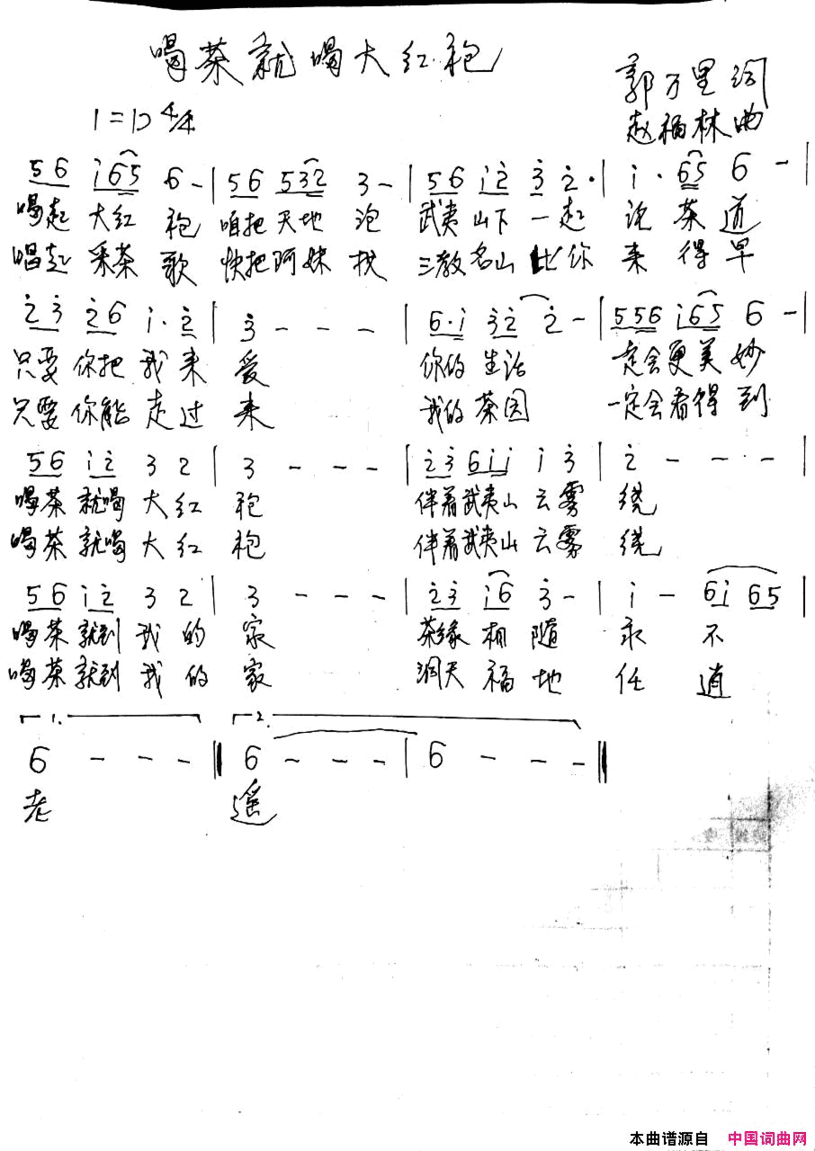 喝茶就喝大红袍
郭万里词
1=D 4/4
赵福林曲
56 i65 6- | 56 532 3- | 56 i2 3 2· | i· 65 6 - |
喝起 大红 袍 咱把 天地 泡 武夷 山下 一起 论 茶 道
唱起 采茶 歌 快把 阿妹 找 三教 名山 比你 来 得 早
23 26 i·2 | 3 - - - | 6·i 32 2 - | 556 i65 6 - |
只要 你把 我来 爱 你的 生活 一定会更美妙
只要 你能 走过 来 我的 茶园 一定会看得到
56 i2 3 2 | 3 - - - | 23 6ii i 3 | 2 - - - |
喝茶 就喝 大红 袍 伴着武夷山 云雾 绕
喝茶 就喝 大红 袍 伴着武夷山 云雾 绕
56 i2 3 2 | 3 - - - | 23 i6 3- | i - 6i 65 |
喝茶 就到 我的 家 茶缘 相 随 永 不
喝茶 就到 我的 家 洞天 福 地 任 逍
1. 2.
6 - - - || 6 - - - | 6 - - - ||
老 遥
本曲谱源自 中国词曲网